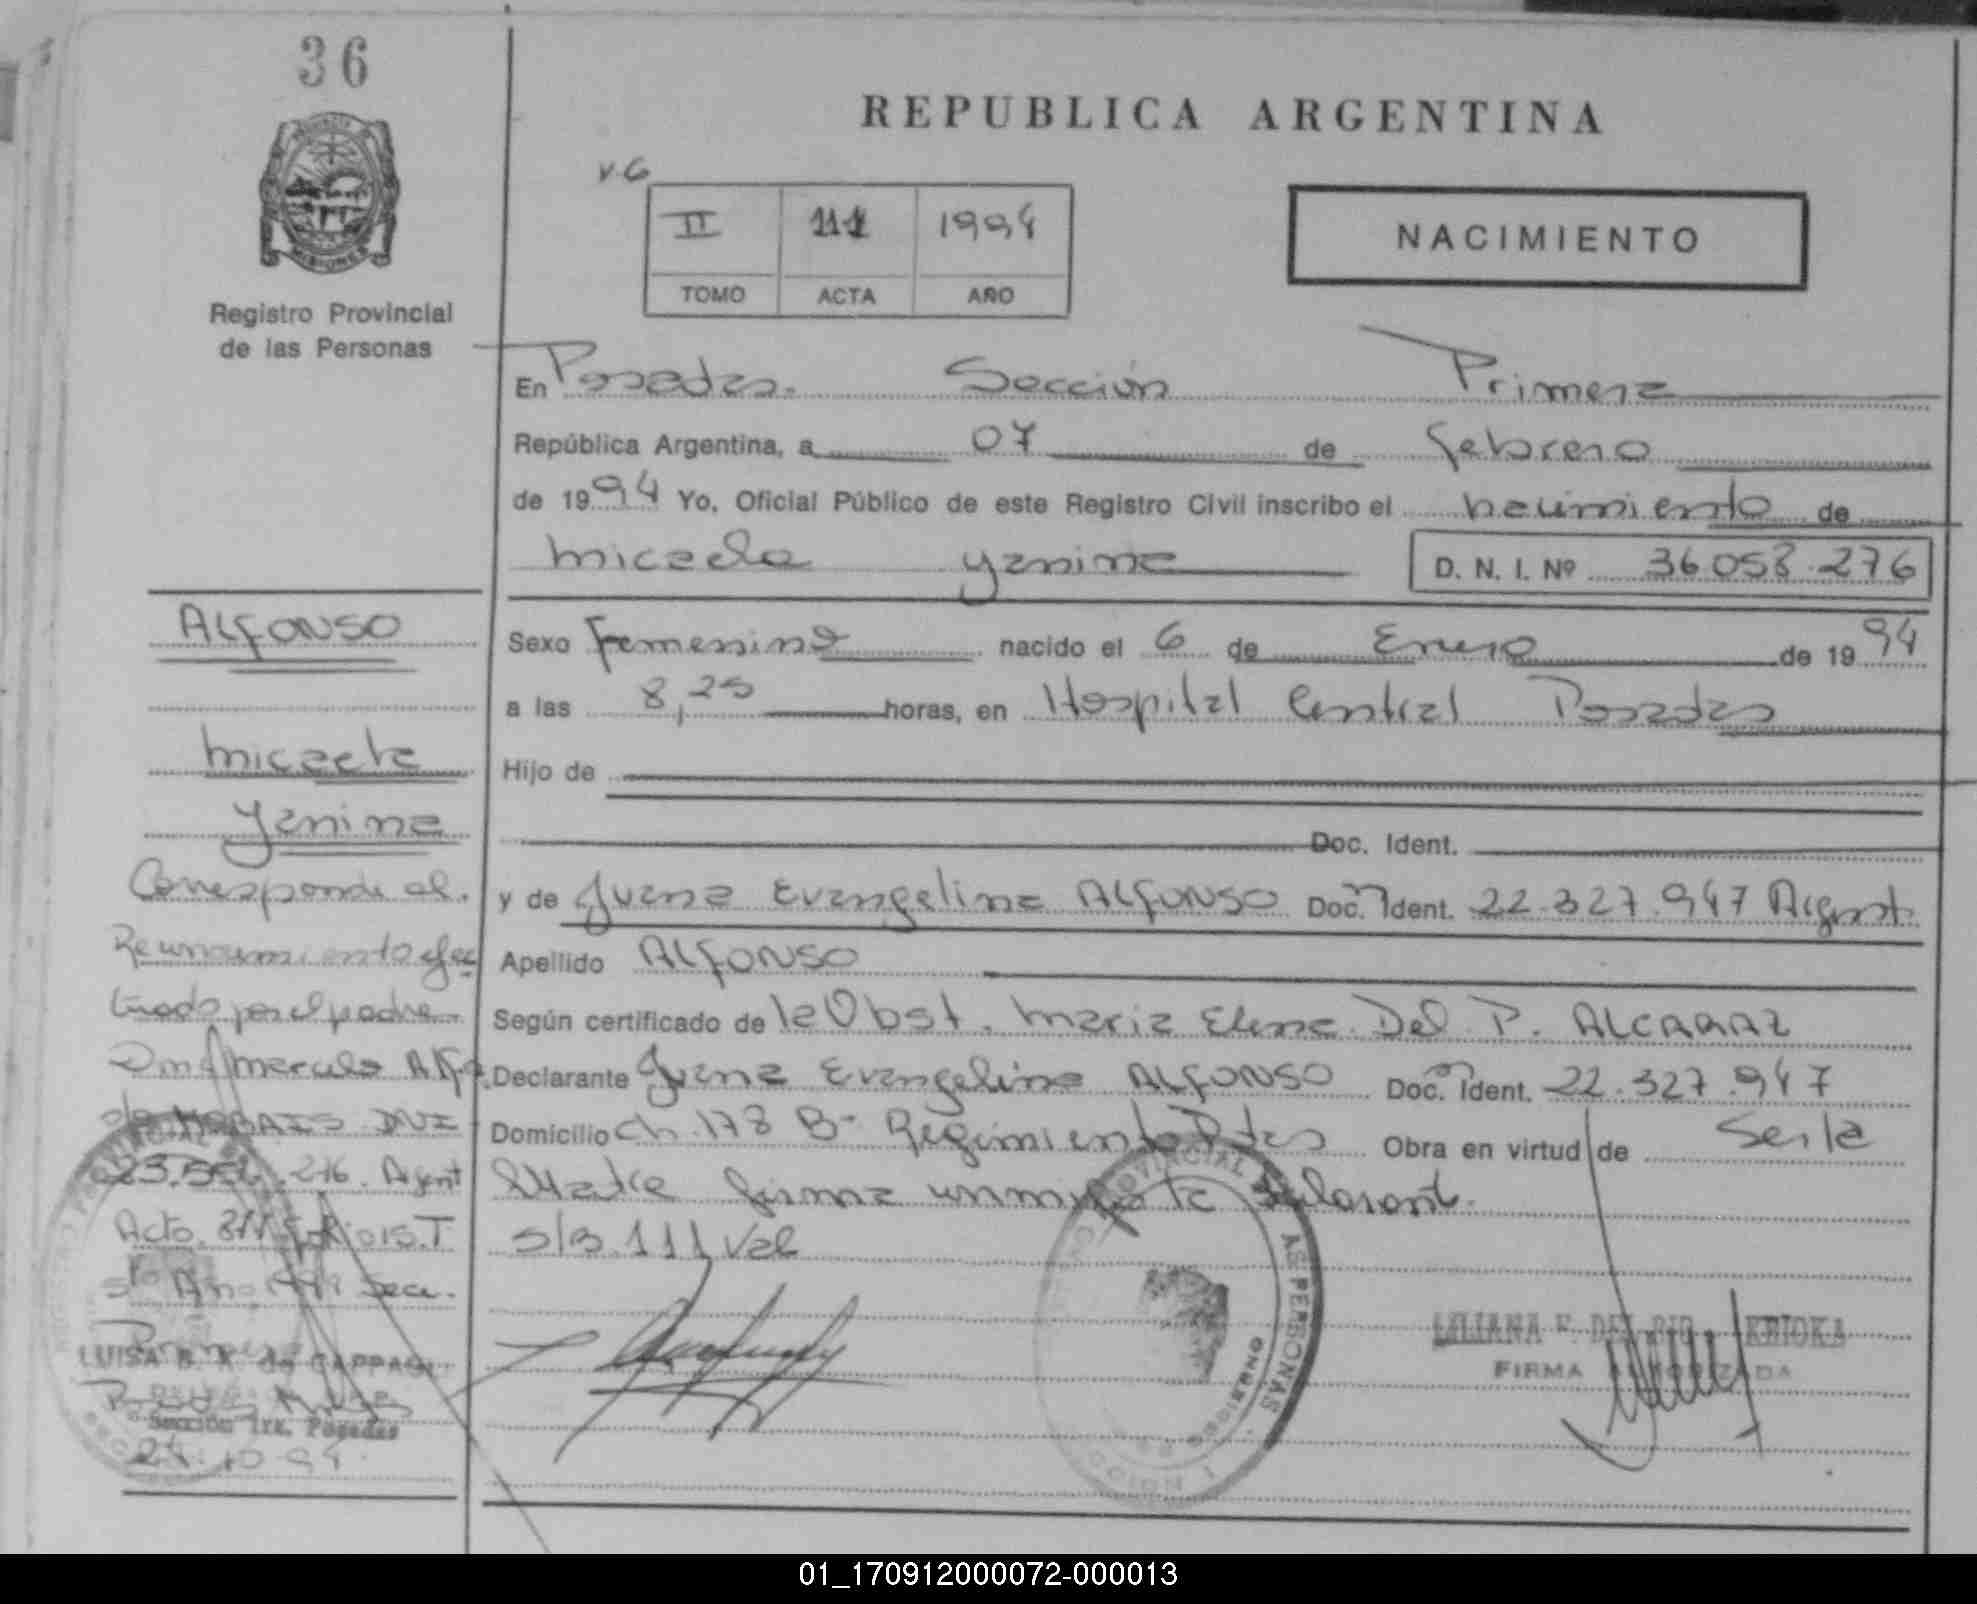 36
REPUBLICA ARGENTINA
v.6
II 111 1994
TOMO ACTA AÑO
NACIMIENTO
MISIONES
Registro Provincial
de las Personas
En Posadas. Sección Primera
República Argentina, a 07 de febrero
de 1994 Yo, Oficial Público de este Registro Civil inscribo el nacimiento de
Micaela Yanina D. N. I. Nº 36.058.276
Sexo Femenino nacido el 6 de Enero de 1994
a las 8,25 horas, en Hospital Central Posadas
Hijo de
Doc. Ident.
y de Juana Evangelina ALFONSO Doc. Ident. 22.327.947 Argent.
Apellido ALFONSO
Según certificado de la Obst. Maria Elena Del P. ALCARAZ
Declarante Juana Evangelina ALFONSO Doc. Ident. 22.327.947
Domicilio Ch. 178 B- Regimiento Pdas Obra en virtud de Ser la
Madre firma
S/B. 111 Vale
LILIANA F. DEL RIO
FIRMA AUTORIZADA
ALFONSO
Micaela
Yanina
Corresponde al
Reconocimiento efec
tuado por el padre
DNI
276. Argent
Acta
Año Secc.
LUISA B. A. de
Sección 1ra. Posadas
24.10.94
01_170912000072-000013